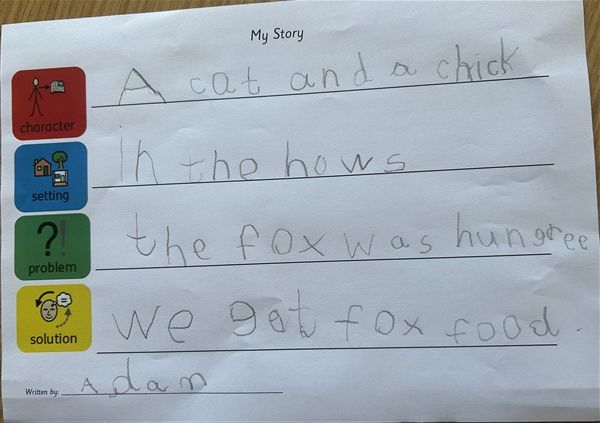 My Story
character
A cat and a chick
setting
in the hows
problem
the fox was hungree
solution
we got fox food.
Written by: Adam